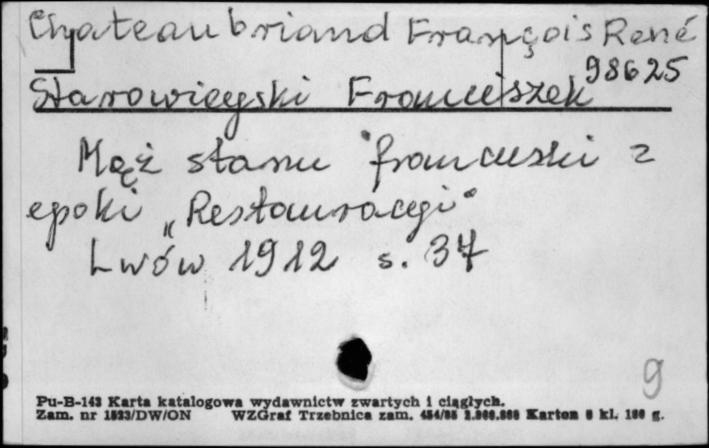 Chateaubriand François René
98625
Starowieyski Franciszek
Mąż stanu francuski z
epoki „Restauracyi"
Lwów 1912 s. 37
9
Pu-B-143 Karta katalogowa wydawnictw zwartych i ciągłych.
Zam. nr 1823/DW/ON WZGraf Trzebnica zam. Karton kl. g.